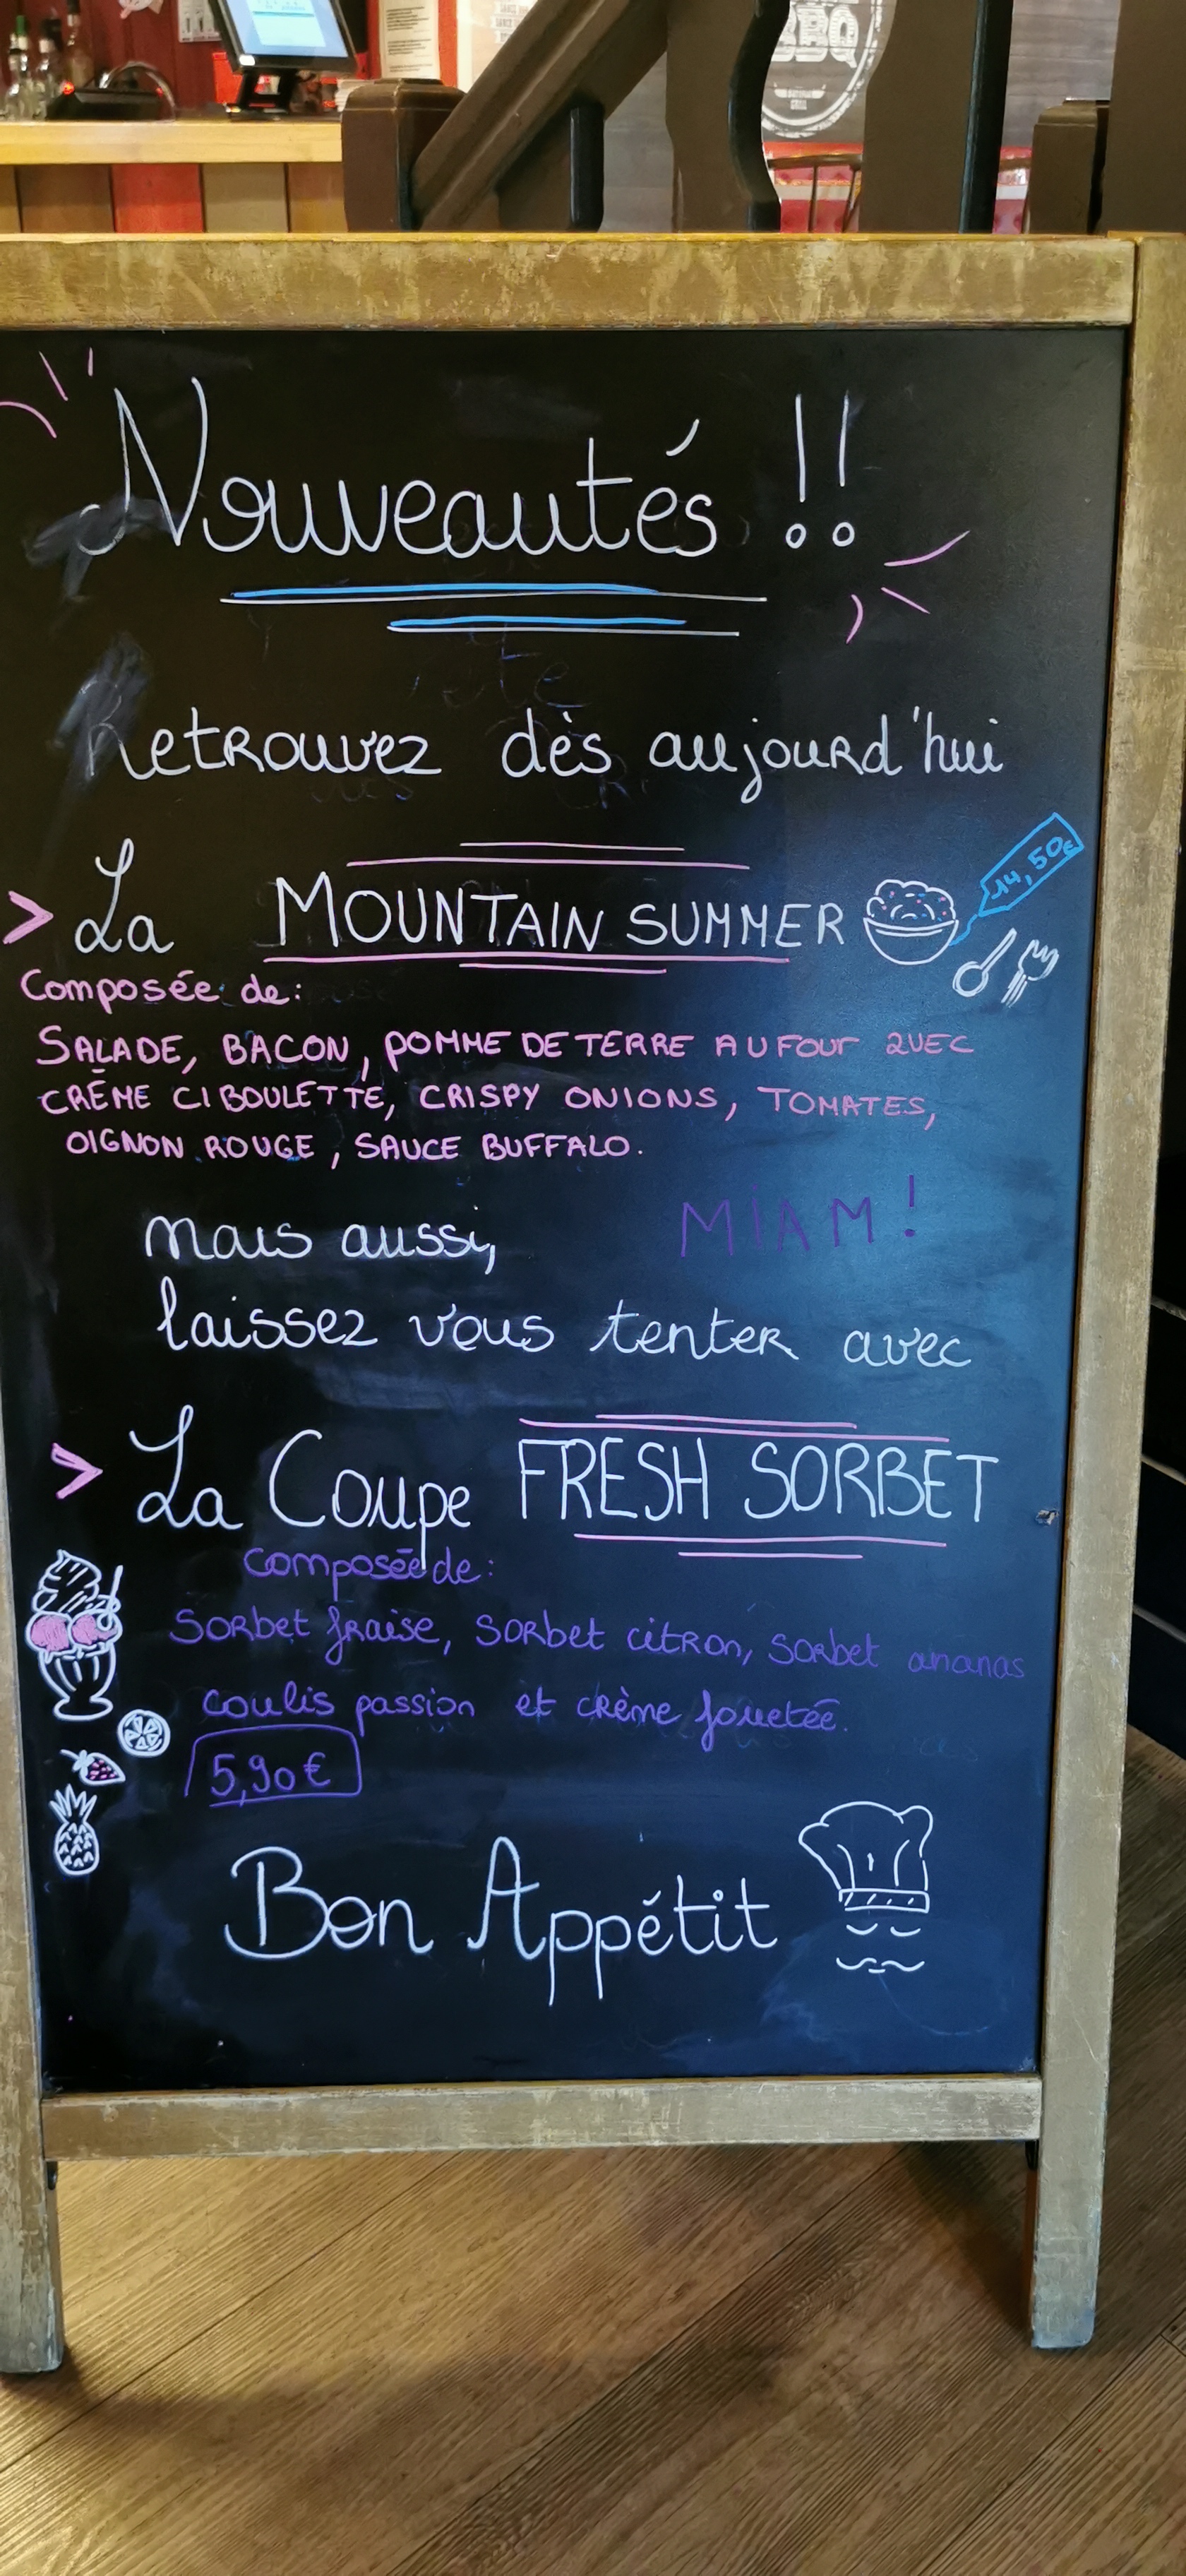 BBQ
Nouveautés !!
Retrouvez dès aujourd'hui
> La MOUNTAIN SUMMER 14,50€
Composée de:
SALADE, BACON, POMME DE TERRE AU FOUR AVEC
CRÈME CIBOULETTE, CRISPY ONIONS, TOMATES,
OIGNON ROUGE, SAUCE BUFFALO.
MIAM !
mais aussi,
laissez vous tenter avec
> La Coupe FRESH SORBET
Composée de:
Sorbet fraise, sorbet citron, sorbet ananas
coulis passion et crème fouetée.
5,90€
Bon Appétit